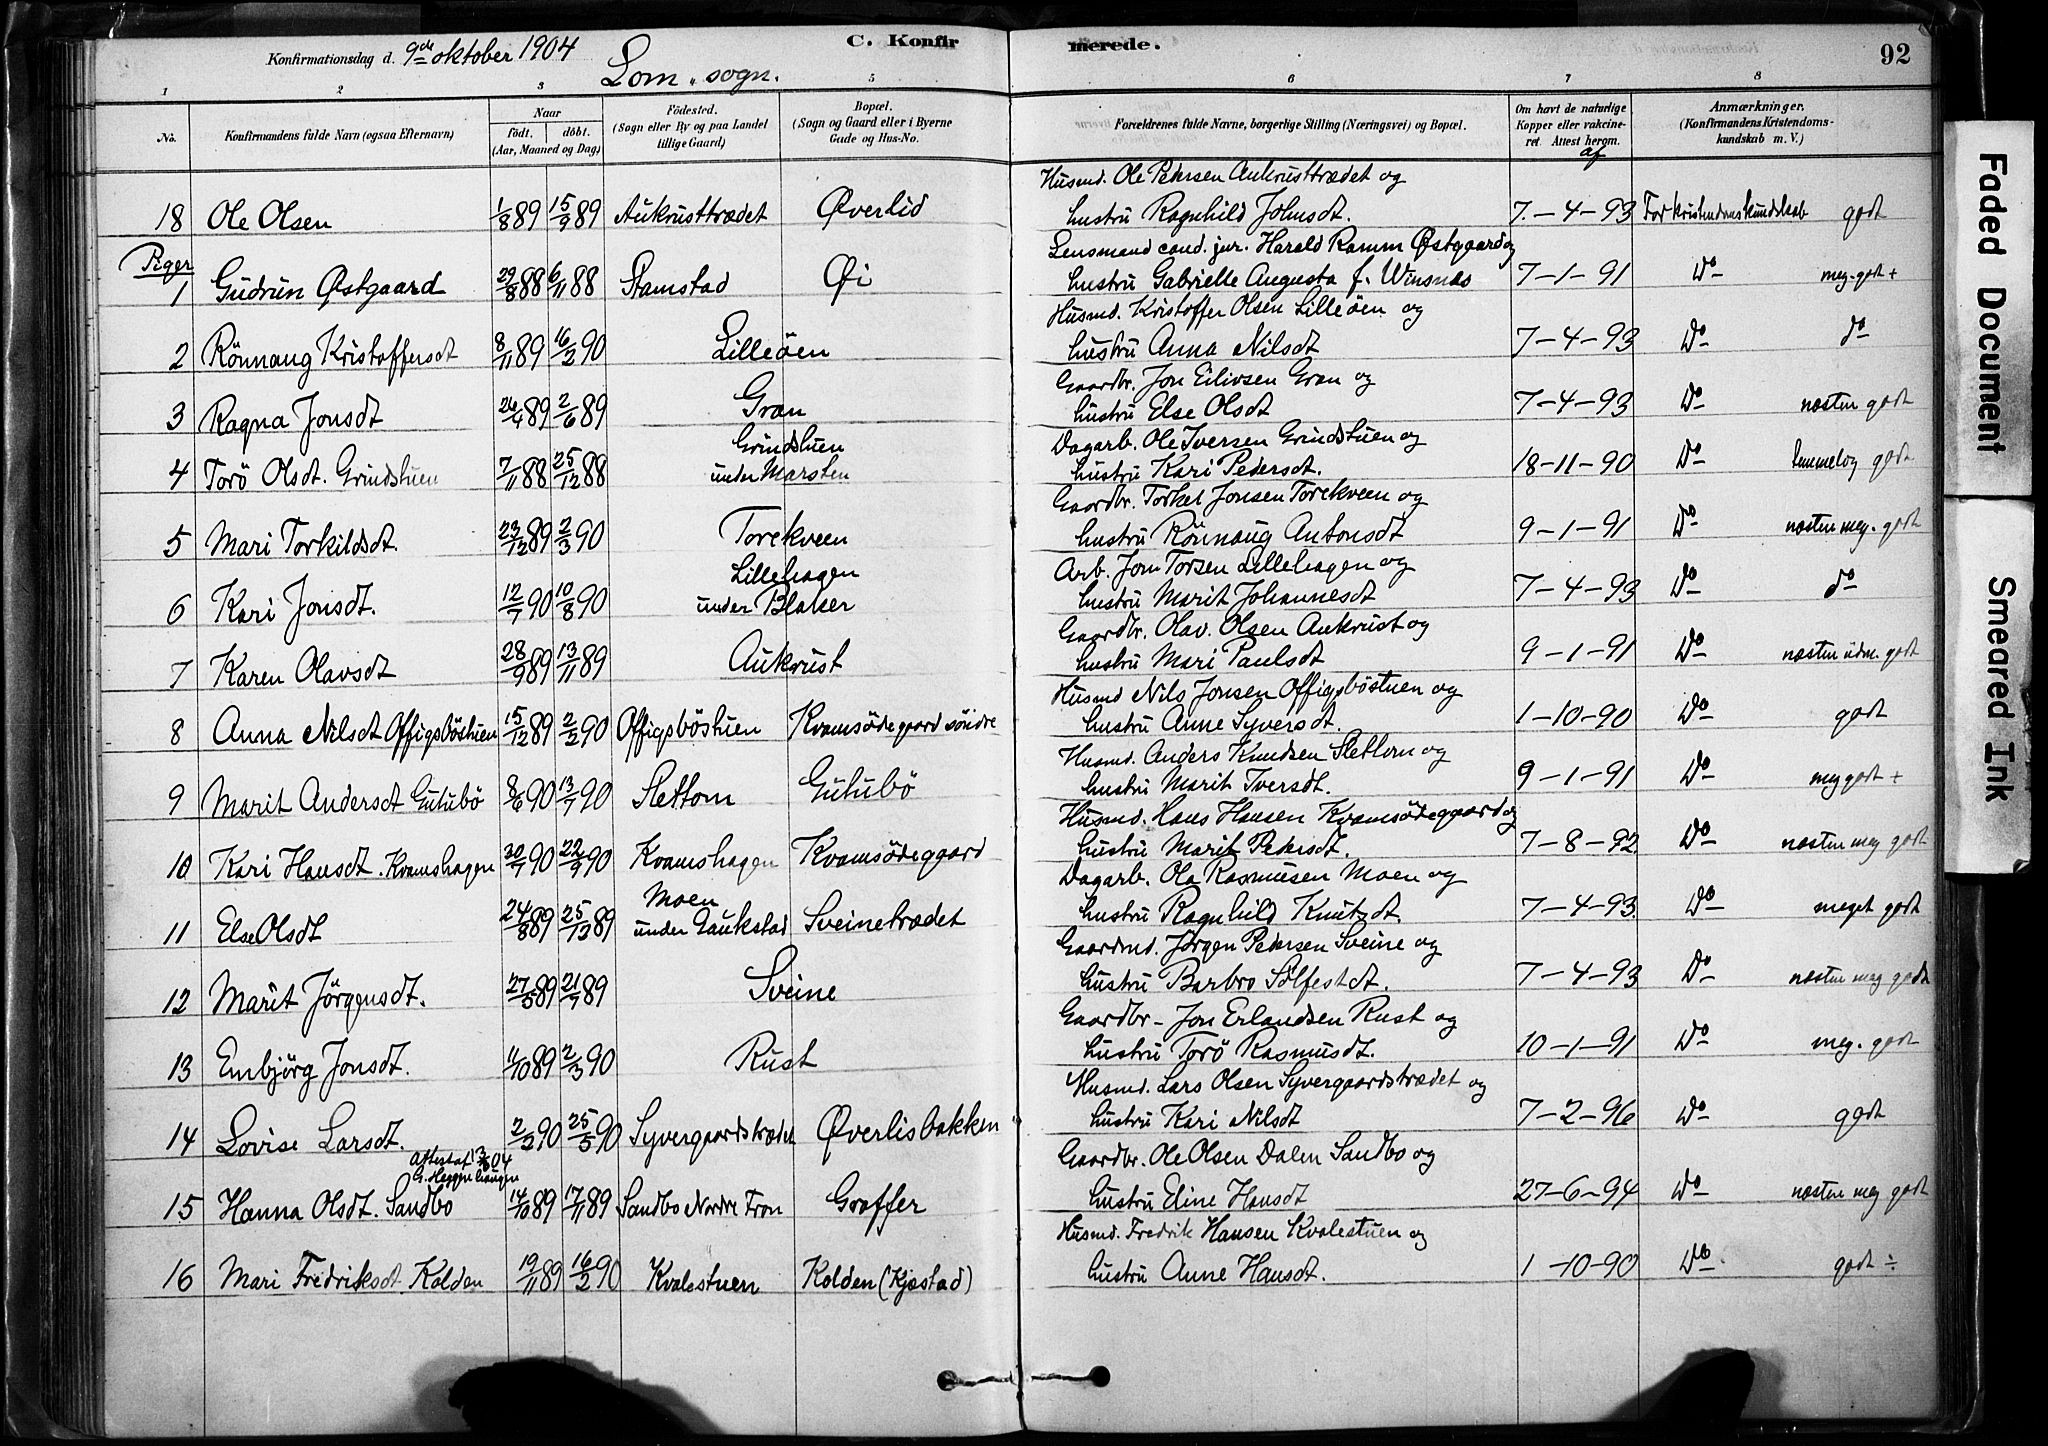 Konfirmationsdag d. 9de oktober 1904
C. Konfirmerede.
92
Lom sogn.
1 2 3 5 6 7 8
No.
Konfirmandens fulde Navn (ogsaa Efternavn)
Naar
født. døbt.
(Aar, Maaned og Dag)
Fødested.
(Sogn eller By og paa Landet tillige Gaard)
Bopæl.
(Sogn og Gaard eller i Byerne Gade og Hus-No.
Forældrenes fulde Navne, borgerlige Stilling (Næringsvei) og Bopæl.
Om havt de naturlige Kopper eller vakcineret. Attest herom. af
Anmærkninger.
(Konfirmandens Kristendomskundskab m. V.)
Husmd. Ole Pedersen Aukrusttrædet og
18 Ole Olsen 1/8 89 15/9 89 Aukrusttrædet Øverlid hustru Ragnhild Johnsdt. 7.-4-93 For kristendomskundskab godt
Piger
Lensmand cand. jur. Harald Ramm Østgaard og
1 Gudrun Østgaard 29/8 88 6/11 88 Stamstad Øi hustru Gabrielle Augusta f. Winsnes 7-1-91 Do meg. godt +
Husmd. Kristoffer Olsen Lilleöen og
2 Rönnaug Kristoffersdt 8/11 89 16/2 90 Lilleöen hustru Anna Nilsdt 7-4-93 Do do
Gaardbr. Jon Eilivsen Gran og
3 Ragna Jonsdt 26/4 89 2/6 89 Gran hustru Else Olsdt 7-4-93 Do næsten godt
Dagarb. Ole Iversen Grindstuen og
4 Torö Olsdt. Grindstuen 7/11 88 25/12 88 Grindstuen under Marsten hustru Kari Pedersdt. 18-11-90 Do temmelig godt
Gaardbr. Torkel Jonsen Torekveen og
5 Mari Torkildsdt. 23/12 89 2/3 90 Torekveen hustru Rönnaug Antonsdt 9-1-91 Do næsten meg. godt
Arb. Jon Torsen Lillehagen og
6 Kari Jonsdt. 12/7 90 10/8 90 Lillehagen under Blaker hustru Marit Johannesdt 7-4-93 Do do
Gaardbr. Olav. Olsen Aukrust og
7 Karen Olavsdt 28/9 89 13/11 89 Aukrust hustru Mari Paulsdt 9-1-91 Do næsten udm. godt
Husmd Nils Jonsen Offigsböstuen og
8 Anna Nilsdt Offigsböstuen 15/12 89 2/2 90 Offigsböstuen Kvamsödegaard söidre hustru Anne Syversdt. 1-10-90 Do godt
Husmd. Anders Knudsen Slettom og
9 Marit Andersdt Gutubö 8/6 90 13/7 90 Slettom Gutubö hustru Marit Iversdt. 9-1-91 Do meg godt +
Husmd. Hans Hansen Kvamsödeggaard og
10 Kari Hansdt. Kvamshagen 20/7 90 22/9 90 Kvamshagen Kvamsödeggard hustru Marit Pedersdt. 7-8-92 Do næsten meg godt
Dagarb. Ola Rasmusen Moen og
11 Else Olsdt 24/8 89 25/12 89 Moen under Gaukstad Sveinetrædet hustru Ragnhild Knutsdt. 7-4-93 Do meget godt
Gaardmd. Jörgen Pedersen Sveine og
12 Marit Jörgensdt. 27/5 89 21/7 89 Sveine hustru Barbro Sölfestdt. 7-4-93 Do næsten meg godt
Gaardbr- Jon Erlandsen Rust og
13 Embjörg Jonsdt. 4/10 89 2/3 90 Rust hustru Torö Rasmusdt. 10-1-91 Do meg. godt
Husmd. Lars Olsen Syvergaardstrædet og
14 Lovise Larsdt. 2/2 90 25/5 90 Syvergaardstrædet Øverlisbakken hustru Kari Nilsdt 7-2-96 Do godt
Gaardbr. Ole Olsen Dalen Sandbo og
15 Hanna Olsdt. Sandbo 14/10 89 17/11 89 Sandbo Nordre Fron Graffer hustru Eline Hansdt 27-6-94 Do næsten meg godt
Husmd. Fredrik Hansen Kvalestuen og
16 Mari Fredriksdt. Kolden 19/11 89 16/2 90 Kvalestuen Kolden (Kjæstad) hustru Anne Hansdt. 1-10-90 Do godt ÷
Faded Document
Smeared Ink